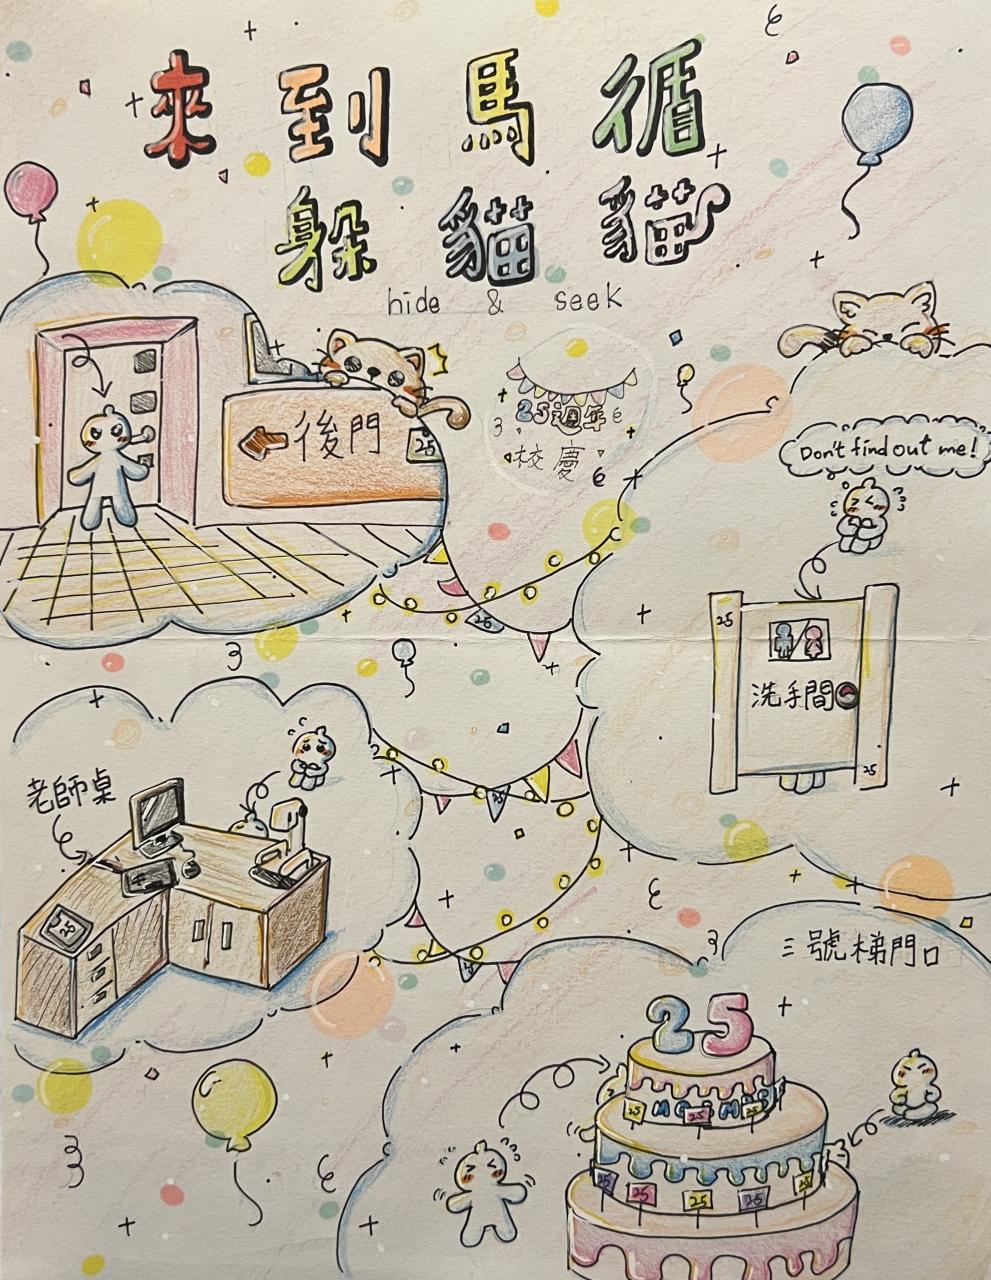 來到馬循
躲貓貓
hide & seek
25週年
校慶
後門
25
Don't find out me!
25
洗手間
25
25
25
老師桌
25
25
三號梯門口
25
25
25
25
25
25
25
25
25